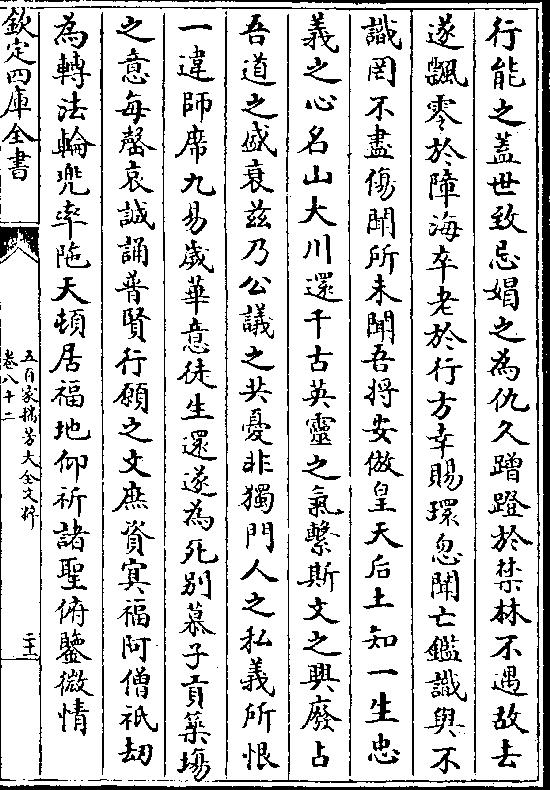 行能之蓋世致忌媢之為仇久蹭蹬於禁林不遇故去
遂飄零於障海卒老於行方幸賜環忽聞亡鑑識與不
識罔不盡傷聞所未聞吾將安倣皇天后土知一生忠
義之心名山大川還千古英靈之氣繫斯文之興廢占
吾道之盛衰兹乃公議之共憂非獨門人之私義所恨
一違師席九易歲華意徒生還遂為死別慕子貢築塲
之意每罄哀誠誦普賢行願之文庶資㝠福阿僧祇刼
為轉法輪兜率陁天頓居福地仰祈諸聖俯鑒微情
欽定四庫全書
五百家播芳大全文粹
卷八十二
二十一